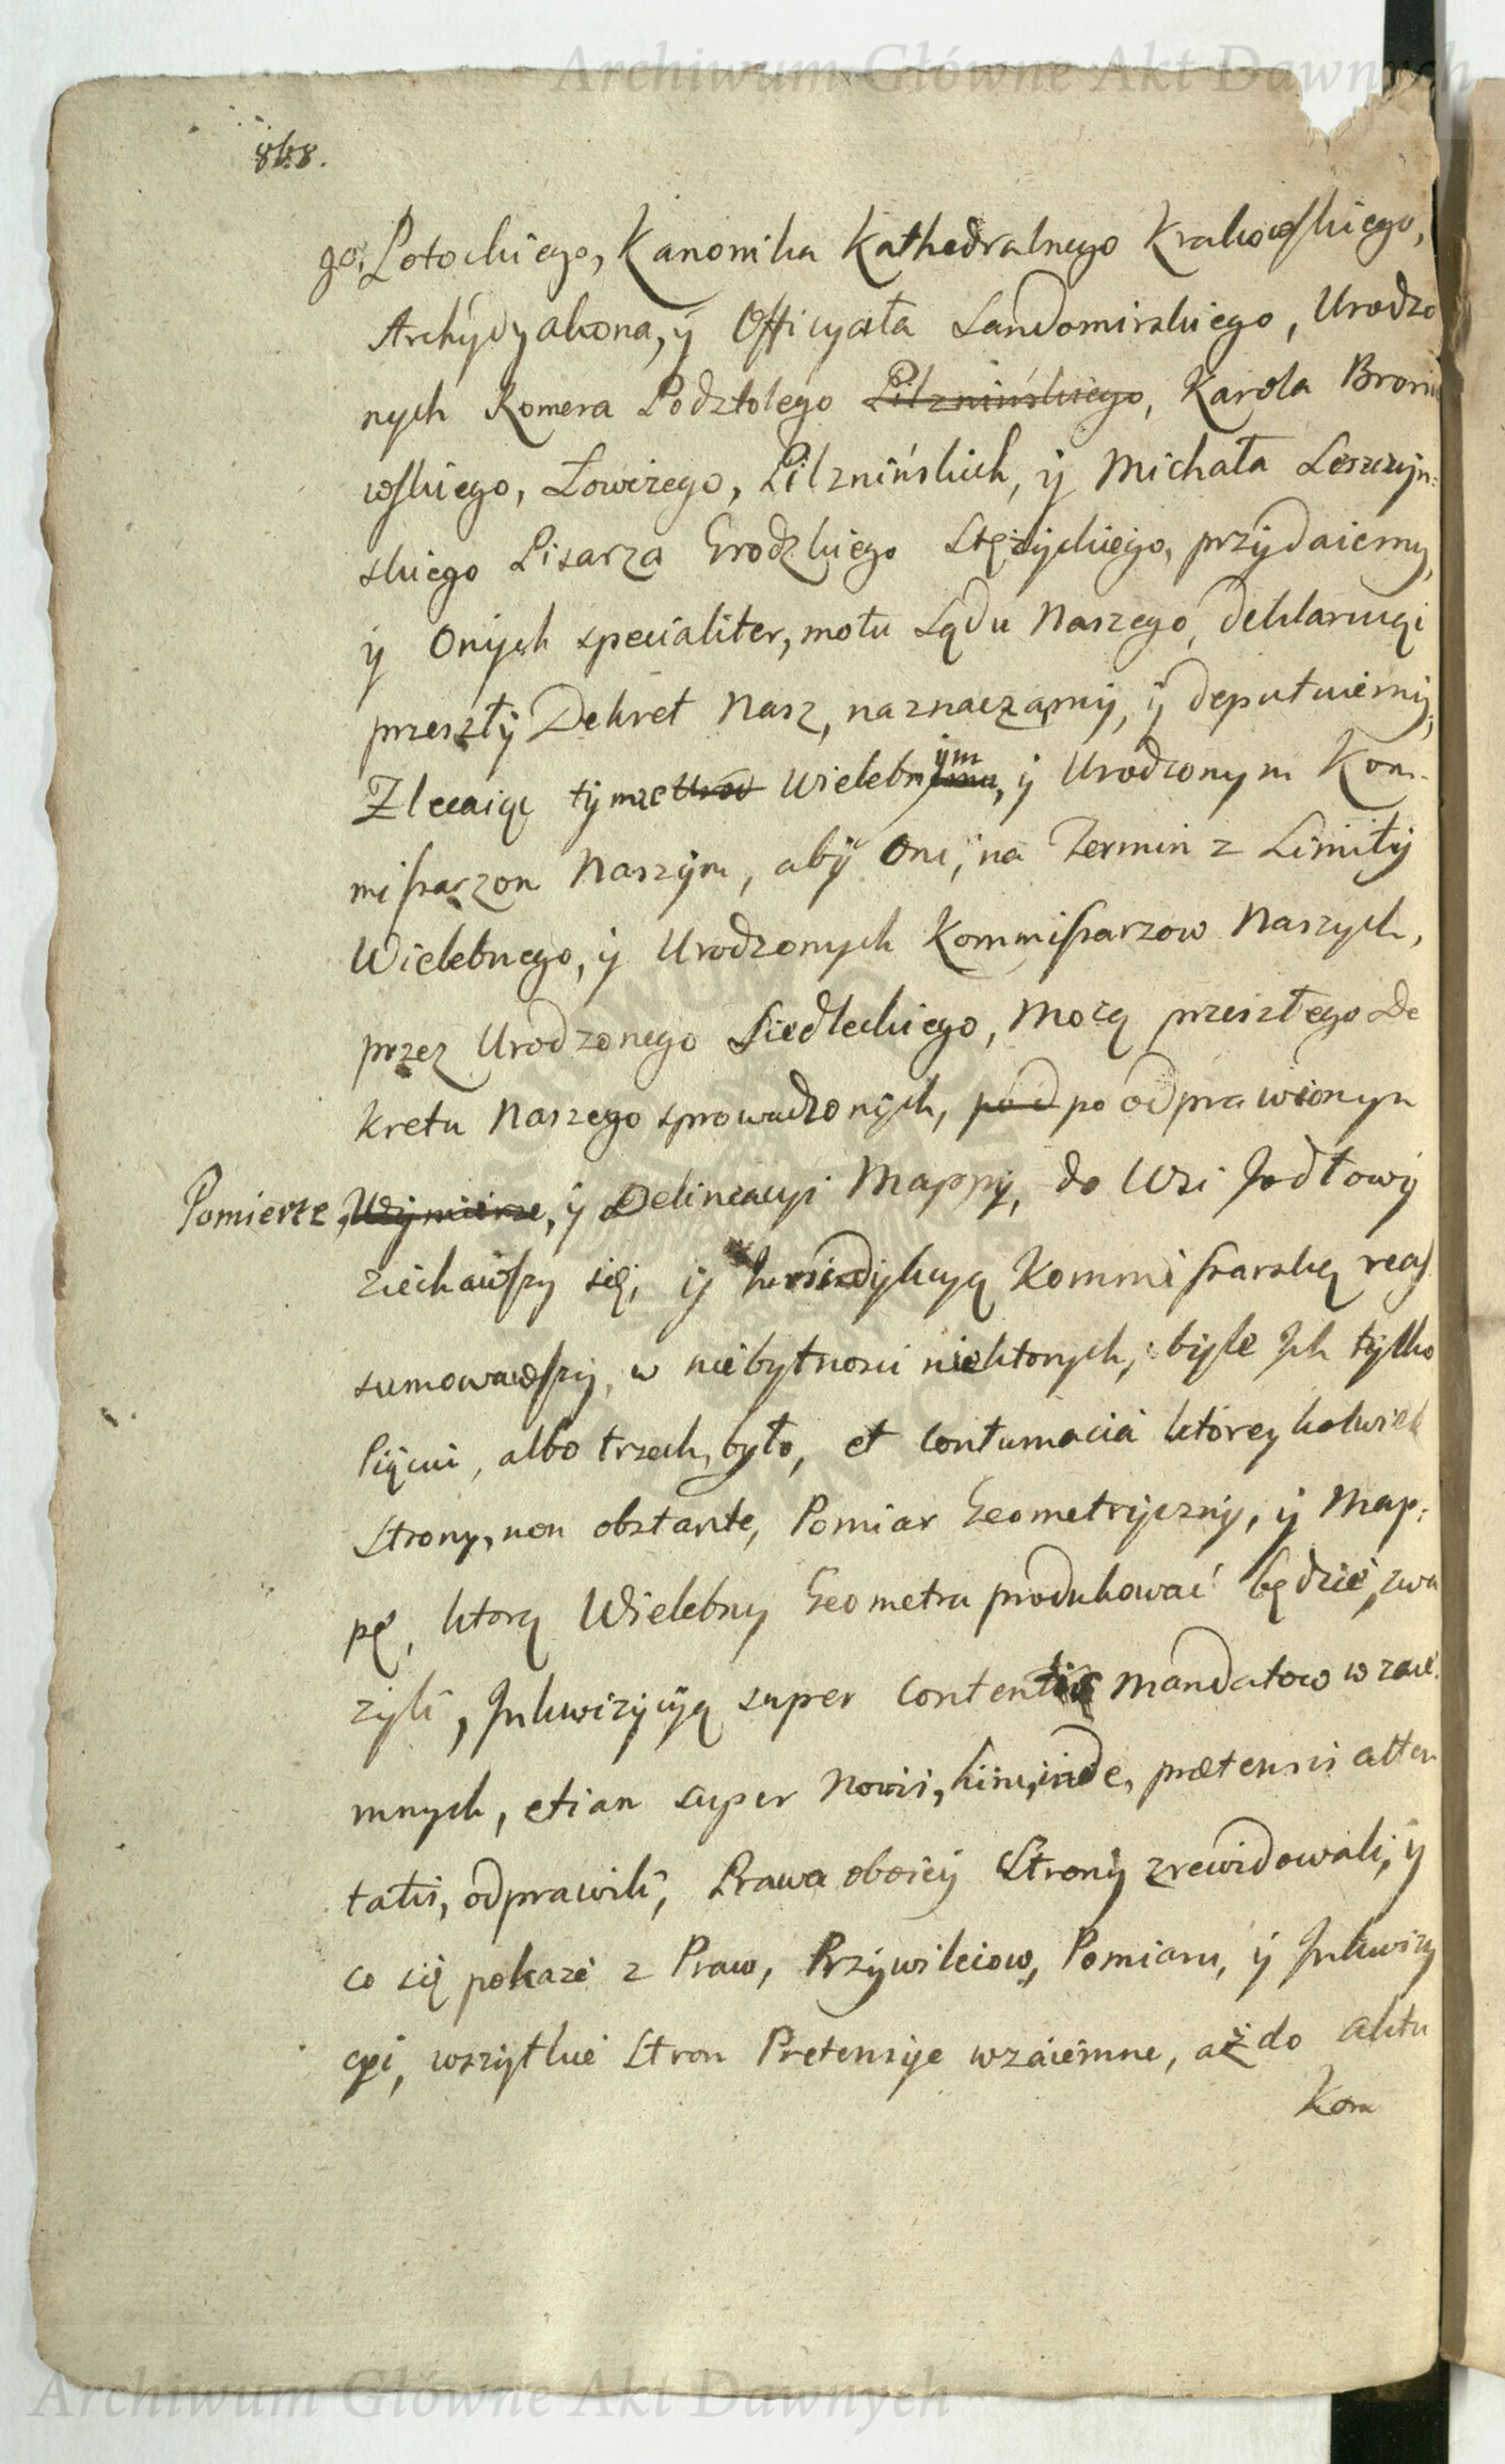 Archiwum Główne Akt Dawnych
868.
go, Potockiego, Kanonika Kathedralnego Krakowskiego,
Archydyakona, y Officyała Sandomirskiego, Urodzo
nych Romera Podstolego Pilznińskiego, Karola Broni
wskiego, Łowczego, Pilznińskich, y Michała Leszczyn:
skiego Pisarza Grodzkiego Stężyckiego, przydaiemy,
y Onych specialiter, motu Sądu Naszego, deklaruiąc
przeszły Dekret Nasz, naznaczamy, y deputuiemy,
Zlecaiąc tymże Urod Wielebnym, y Urodzonym Kom-
missarzom Naszym, aby Oni, na Termin z Limity
Wielebnego, y Urodzonych Kommissarzow Naszych,
przez Urodzonego Siedleckiego, Mocą przeszłego De
kretu Naszego sprowadzonych, pod po odprawionym
Pomierze, Wymierze, y Delineacyi Mappy, do Wsi Jodłowy
ziechawszy się, y Jurisdykcyą Kommissarską reas
sumowawszy, w niebytnosci niektorych, byle Ich tylko
Pięciu, albo trzech, było, et Contumacia ktoreykolwiek
Strony, non obstante, Pomiar Geometryczny, y Map:
pę, ktorą Wielebny Geometra produkować będzie, zwa
zyli, Inkwizycyą super Contentis Mandatow wzaie:
mnych, etiam super Novis, hinc, inde, prætensis atten
tatis, odprawili, Prawa oboiey Strony zrewidowali, y
co się pokaże z Praw, Przywileiow, Pomiaru, y Inkwizy
cyi, wszytkie Stron Pretensye wzaiemne, aż do Aktu
Kom
Archiwum Główne Akt Dawnych